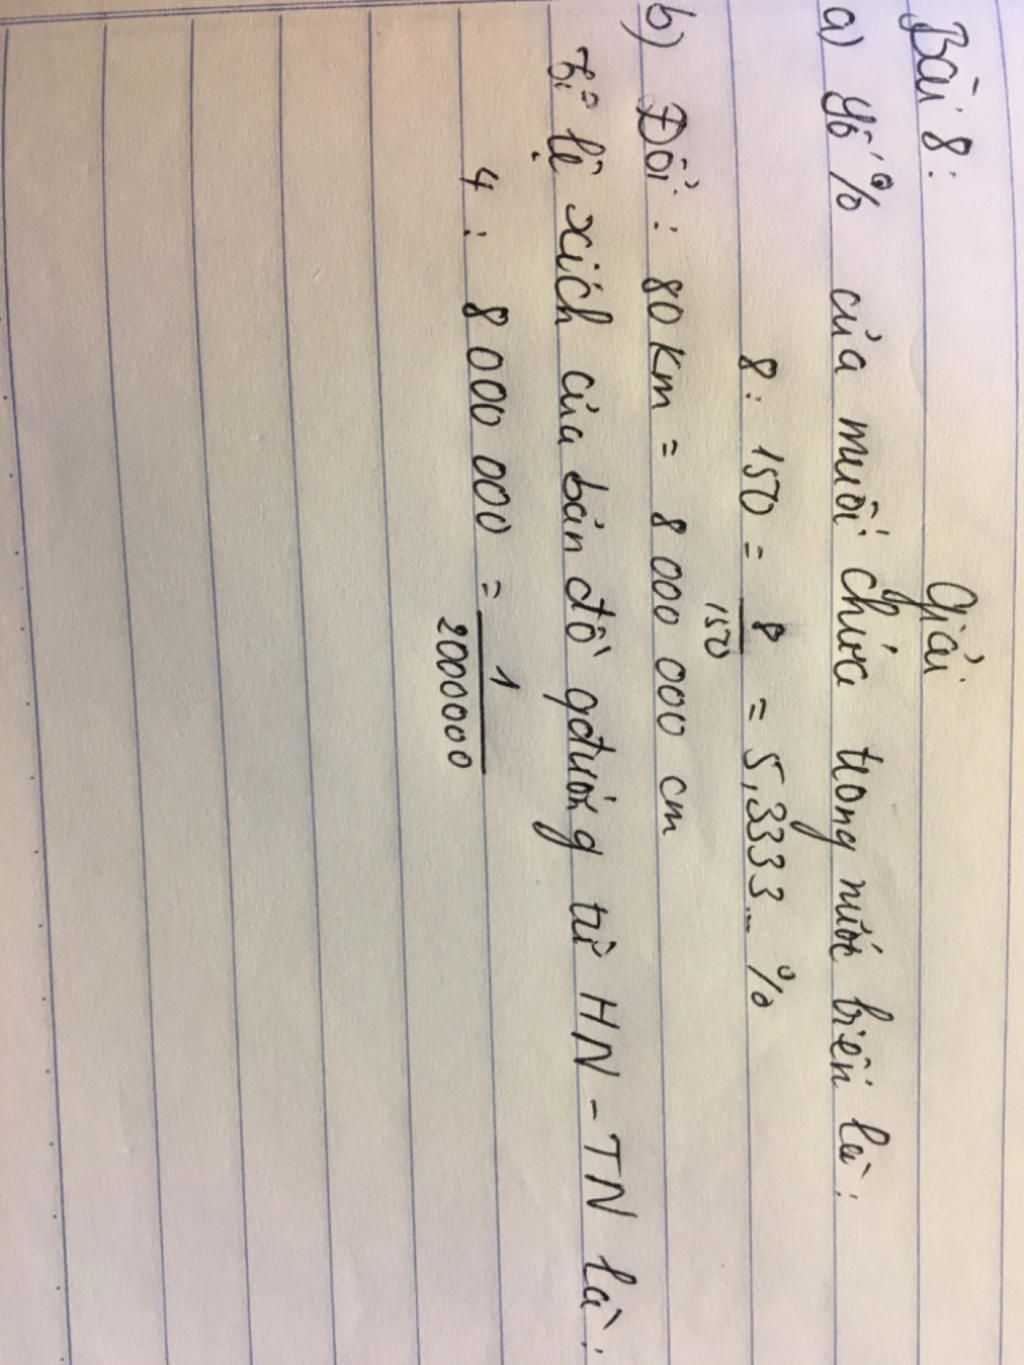 Bài 8:
Giải
a) Số % của muối chứa trong nước biển là:
8 : 150 = 8/150 = 5,3333... %
b) Đổi : 80 km = 8 000 000 cm
Tỉ lệ xích của bản đồ qđường từ HN - TN là:
4 : 8 000 000 = 1/2000000